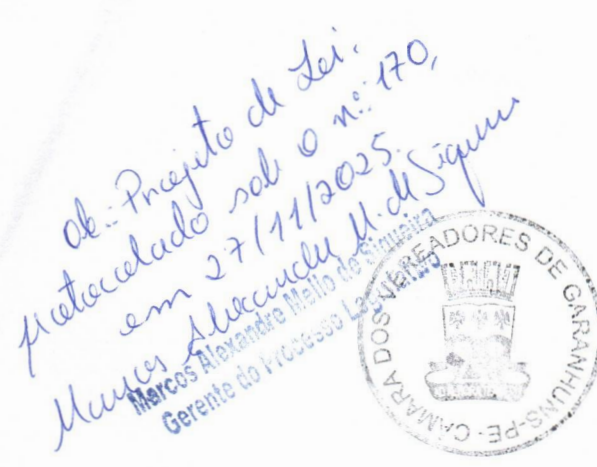 Ob.: Projeto de Lei,
protocolado sob o nº: 170,
em 27/11/2025.
Marcos Alexandre M. de Siqueira
Marcos Alexandre Mello de Siqueira
Gerente do Processo Legislativo
CÂMARA DOS VEREADORES DE GARANHUNS-PE